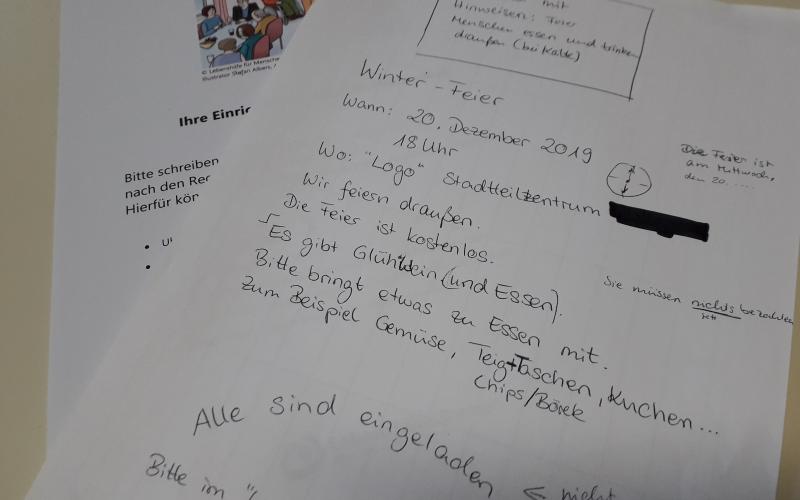 © Lebenshilfe für Mensche
Illustrator Stefan Albers,
Ihre Einric
Bitte schreiben
nach den Reg
Hierfür kön
mit
Hinweisen: Feier
Menschen essen und trinken
draußen (bei Kälte)
Winter-Feier
Wann: 20. Dezember 2019
18 Uhr
Wo: "Logo" Stadtteilzentrum
Die Feier ist
am Mittwoch,
den 20. ....
Wir feiern draußen.
Die Feier ist kostenlos.
Sie müssen nichts bezahlen
Es gibt Glühwein (und Essen).
Bitte bringt etwas zu Essen mit.
Zum Beispiel Gemüse, Teig-Taschen, Kuchen...
Chips/Börek
Alle sind eingeladen ← nicht
Bitte im "